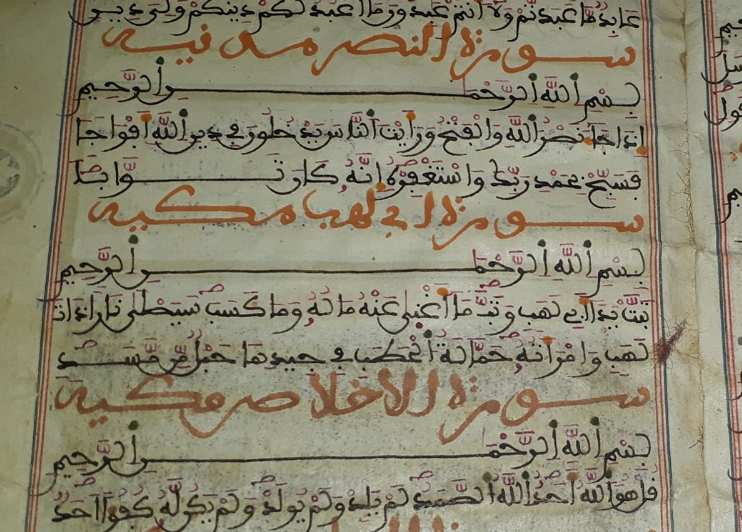 عابد ما عبدتم ولا أنتم عبدون ما أعبد لكم دينكم ولي دين
سورة النصر مدنية
بسم الله الرحمن الرحيم
إذا جا نصر الله والفتح ورأيت الناس يدخلون في دين الله أفواجا
فسبح بحمد ربك واستغفره إنه كان توابا
سورة أبي لهب مكية
بسم الله الرحمن الرحيم
تبت يدا أبي لهب وتب ما أغنى عنه ماله وما كسب سيصلى نارا ذات
لهب وامرأته حمالة الحطب في جيدها حبل من مسد
سورة الاخلاص مكية
بسم الله الرحمن الرحيم
قل هو الله أحد الله الصمد لم يلد ولم يولد ولم يكن له كفوا أحد